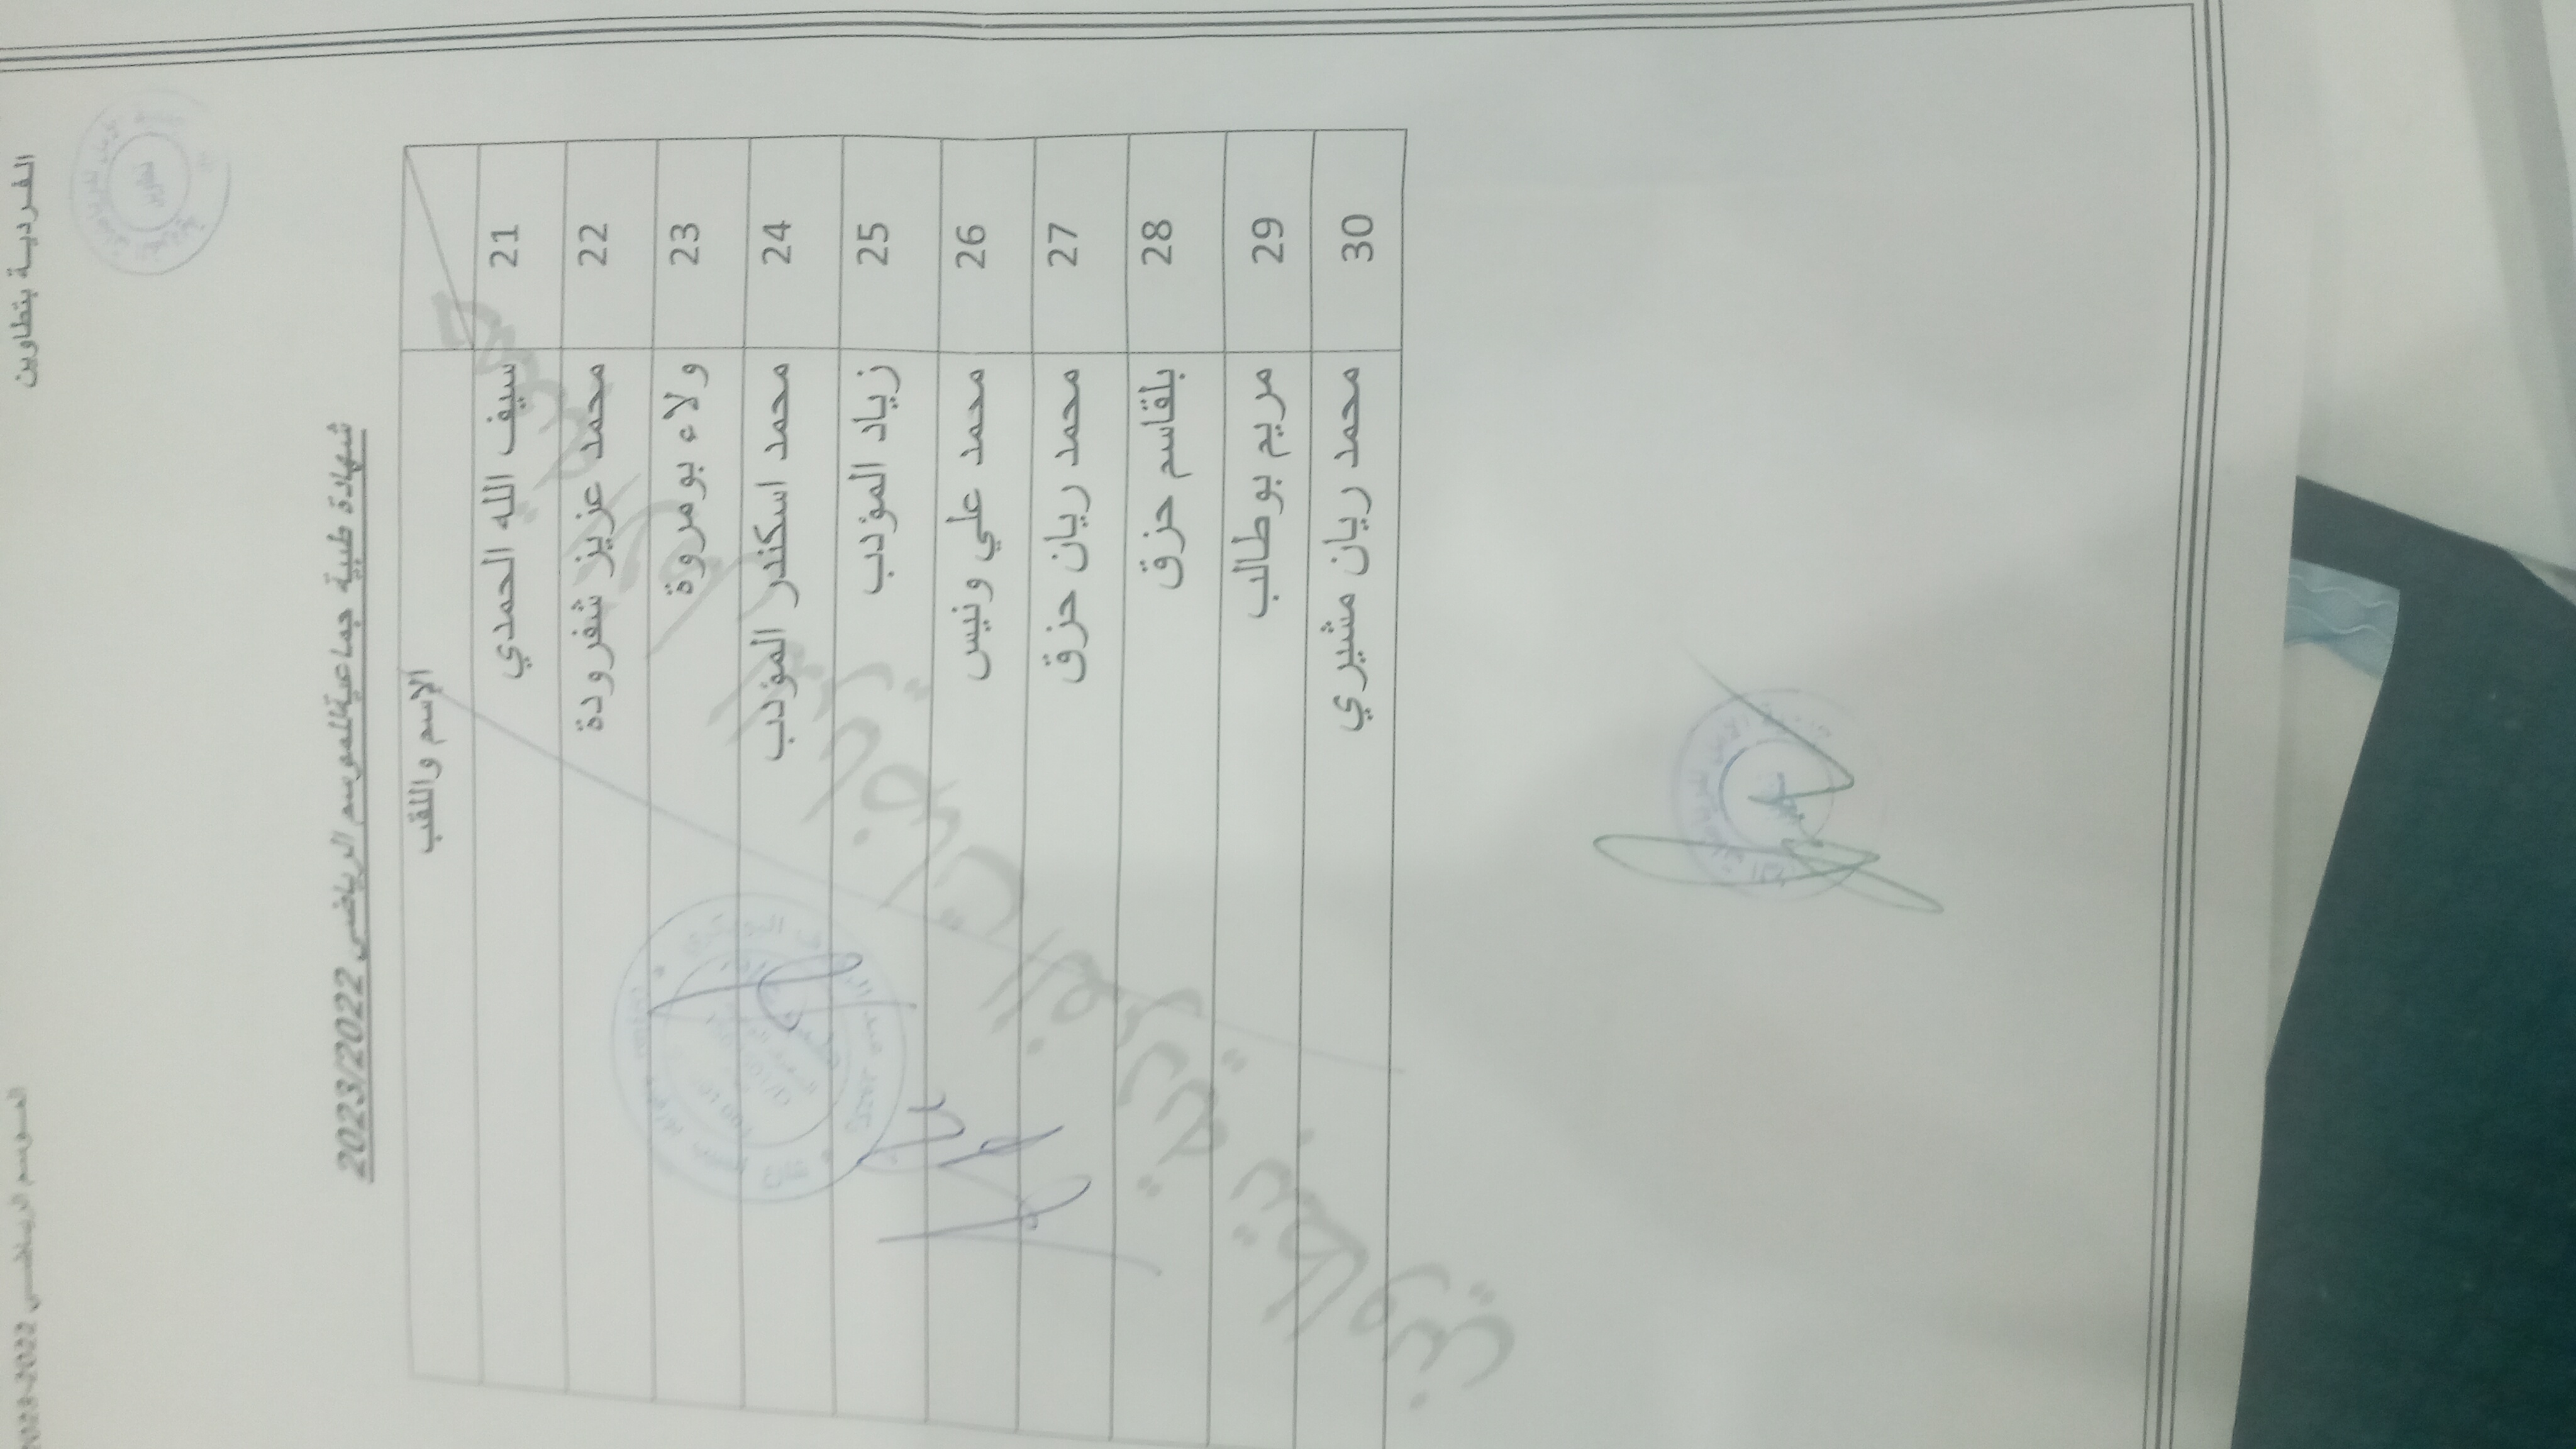 الفردية بتطاوين
الموسم الرياضي 2022-2023
شهادة طبية جماعية للموسم الرياضي 2023/2022
الإسم واللقب
21 سيف الله الحمدي
22 محمد عزيز شفرودة
23 ولاء بومروة
24 محمد اسكندر المؤدب
25 زياد المؤدب
26 محمد علي ونيس
27 محمد ريان حزق
28 بلقاسم حزق
29 مريم بوطالب
30 محمد ريان مشيري
جمعية
الرياضات الفردية بتطاوين